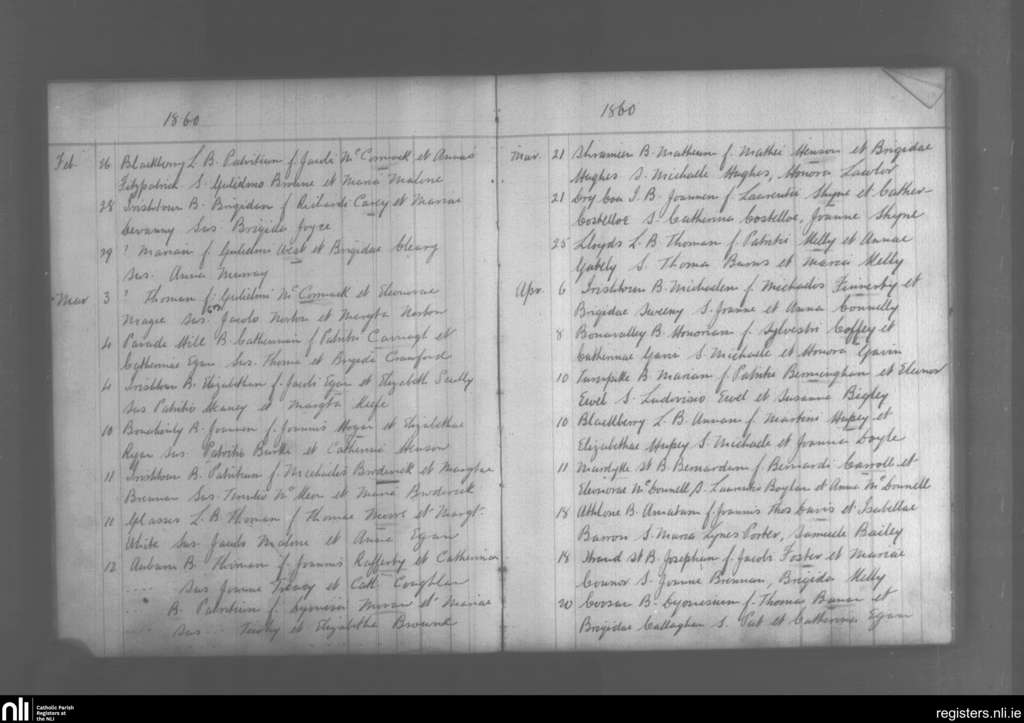 1860
Feb 26 Blackberry L. B. Patritium f. Jacobi Mc Cormack et Annae
Fitzpatrick S. Gulielmo Browne et Maria Malone
28 Irishtown B. Brigidam f Richardi Carey et Mariae
Devanny Sus. Brigida Joyce
29 ? Mariam f. Gulielmi West et Brigidae Cleary
Sus. Anna Murray
Mar 3 ? Thomam f. Gulielmi Mc Cormack et Eleonorae
Magee Sus. Jacobo Norton et Margta Norton
4 Parade Hill B. Catherinam f Patritii et
Catherinae Egan Sus. Thoma et Brigida Cranford
4 Irishtown B. Elizabetham f. Jacobi Egan et Elizabeth Scully
Sus Patritio Heaney et Margta Keefe
10 B. Joannem f. Joannis Hogan et Elizabethae
Ryan Sus. Patritio Burke et Catherina
11 Irishtown B. Patritium f. Michaelis Broderick et Margtae
Brennan Sus. et Maria Broderick
11 Glasses L. B. Thomam f Thomae Moore et Margt.
White Sus. Jacobo Malone et Anna Egan
12 Auburn B. f. Joannis Rafferty et Catherinae
.... Sus Joanne Treacy et Cath. Coughlan
B. Patritium f. Moran et Mariae
Sus ... et Elizabetha Browne
1860
Mar. 21 B. Mathiam f. Mathei Henson et Brigidae
Hughes S. Michaele Hughes, Honora Lawlor
21 Dry Coa I. B. Joannem f. Laurentii Shyne et Cather-
Costelloe S. Catherina Costelloe, Joanne Shyne
25 Lloyds L. B. Thomam f. Patritii Melly et Annae
Gately S. Thoma Burns et Maria Melly
Apr. 6 Irishtown B. Michaelem f. Michaelis Finnerty et
Brigidae Sweeny S. Joanne et Anna Connelly
8 Bonavalley B. Honoriam f. Sylvestri Coffey et
Catherinae Gavin S. Michaele et Honora Gavin
10 Turnpike B. Mariam f. Patritii Bermingham et Eleanor
Ewel S. Ludovisio Ewel et Susanna Bigley
10 Blackberry L. B. Annam f. Martini Hupey et
Elizabethae Hupey S. Michaele et Joanna Doyle
11 Mardyke St B. Bernardum f Bernardi Carroll et
Eleonorae Mc Donnell S. Laurentio Boylan et Anna Mc Donnell
18 Athlone B. Amatum f. Joannis Thos Davis et Isabellae
Barron S. Maria Lynes Porter, Samuele Bailey
18 Strand St B. Josephum f. Jacobi Foster et Mariae
Connor S. Joanne Brennan, Brigida Melly
20 B. Dyonisium f. Thoma et
Brigidae Callaghan S. Pat et Catherina Egan
nli Catholic Parish
Registers at
the NLI
registers.nli.ie